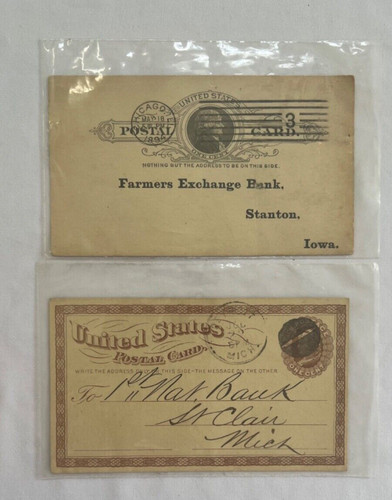 CHICAGO, ILL.
MAY 16
UNITED STATES
3
POSTAL CARD.
ONE CENT
NOTHING BUT THE ADDRESS TO BE ON THIS SIDE.
Farmers Exchange Bank,
Stanton,
Iowa.
MICH
United States
POSTAL CARD.
ONE CENT
WRITE THE ADDRESS ONLY ON THIS SIDE - THE MESSAGE ON THE OTHER
To 1st Nat. Bank
St Clair
Mich